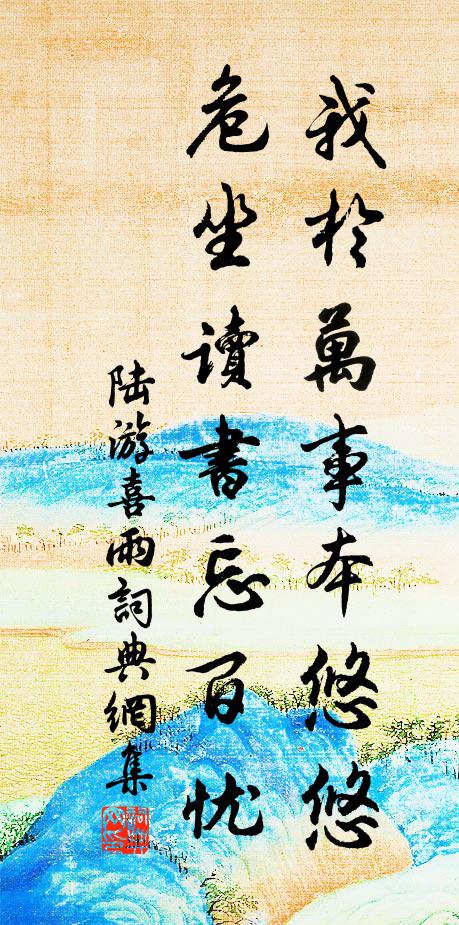 我於萬事本悠悠
危坐讀書忘百忧
陆游喜雨詞典網集